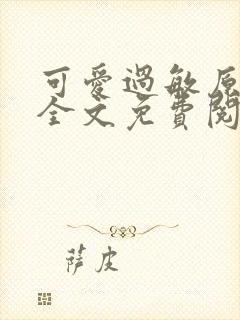 可愛過敏原
全文免費閱
萨皮